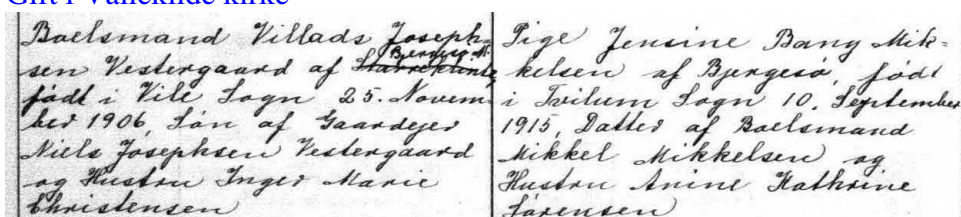 Gift i Vallekilde kirke
Boelsmand Villads Joseph-
sen Vestergaard af Starreklinte
Bjergesø M.
født i Vile Sogn 25. Novem-
ber 1906, Søn af Gaardejer
Niels Josephsen Vestergaard
og Hustru Inger Marie
Christensen
Pige Jensine Bang Mik-
kelsen af Bjergesø, født
i Tvilum Sogn 10. September
1915, Datter af Boelsmand
Mikkel Mikkelsen og
Hustru Anine Kathrine
Sørensen